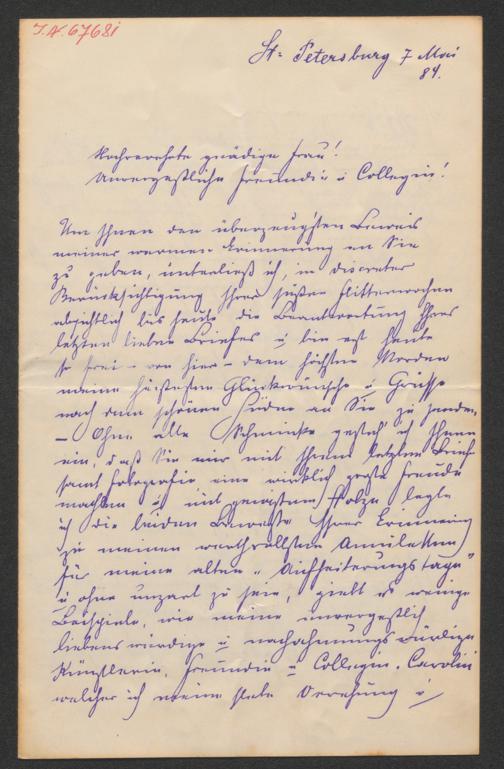 J.N. 67681
St. Petersburg 7 Mai
84.
Hochverehrte gnädige Frau!
Unvergeßliche Freundin u Collegin!
Um Ihnen den überzeugtesten Beweis
meiner warmen Erinnerung an Sie
zu geben, unterließ ich, in discreter
Berücksichtigung Ihrer süßen Flitterwochen
absichtlich bis heute die Beantwortung Ihres
letzten lieben Briefes u bin erst heute
so frei – von hier – dem höchsten Norden
meine heißesten Glückwünsche u Grüsse
nach dem schönen Süden an Sie zu senden.
– Ohne alle Schminke gesteh' ich Ihnen
ein, daß Sie mir mit Ihrem letzten Brief
samt Fotografie eine wirklich große Freude
machten u mit gewissem Stolze legte
ich die beiden Beweise Ihrer Erinnerung
zu meinen werthvollsten Amuletten
für meine alten „Aufheiterungstage"
u ohne unzart zu sein, giebt es wenige
Beispiele, wie meine unvergeßlich
liebenswürdige u nachahmungswürdige
Künstlerin, Freundin u Collegin, Carolin
welcher ich meine stete Verehrung u